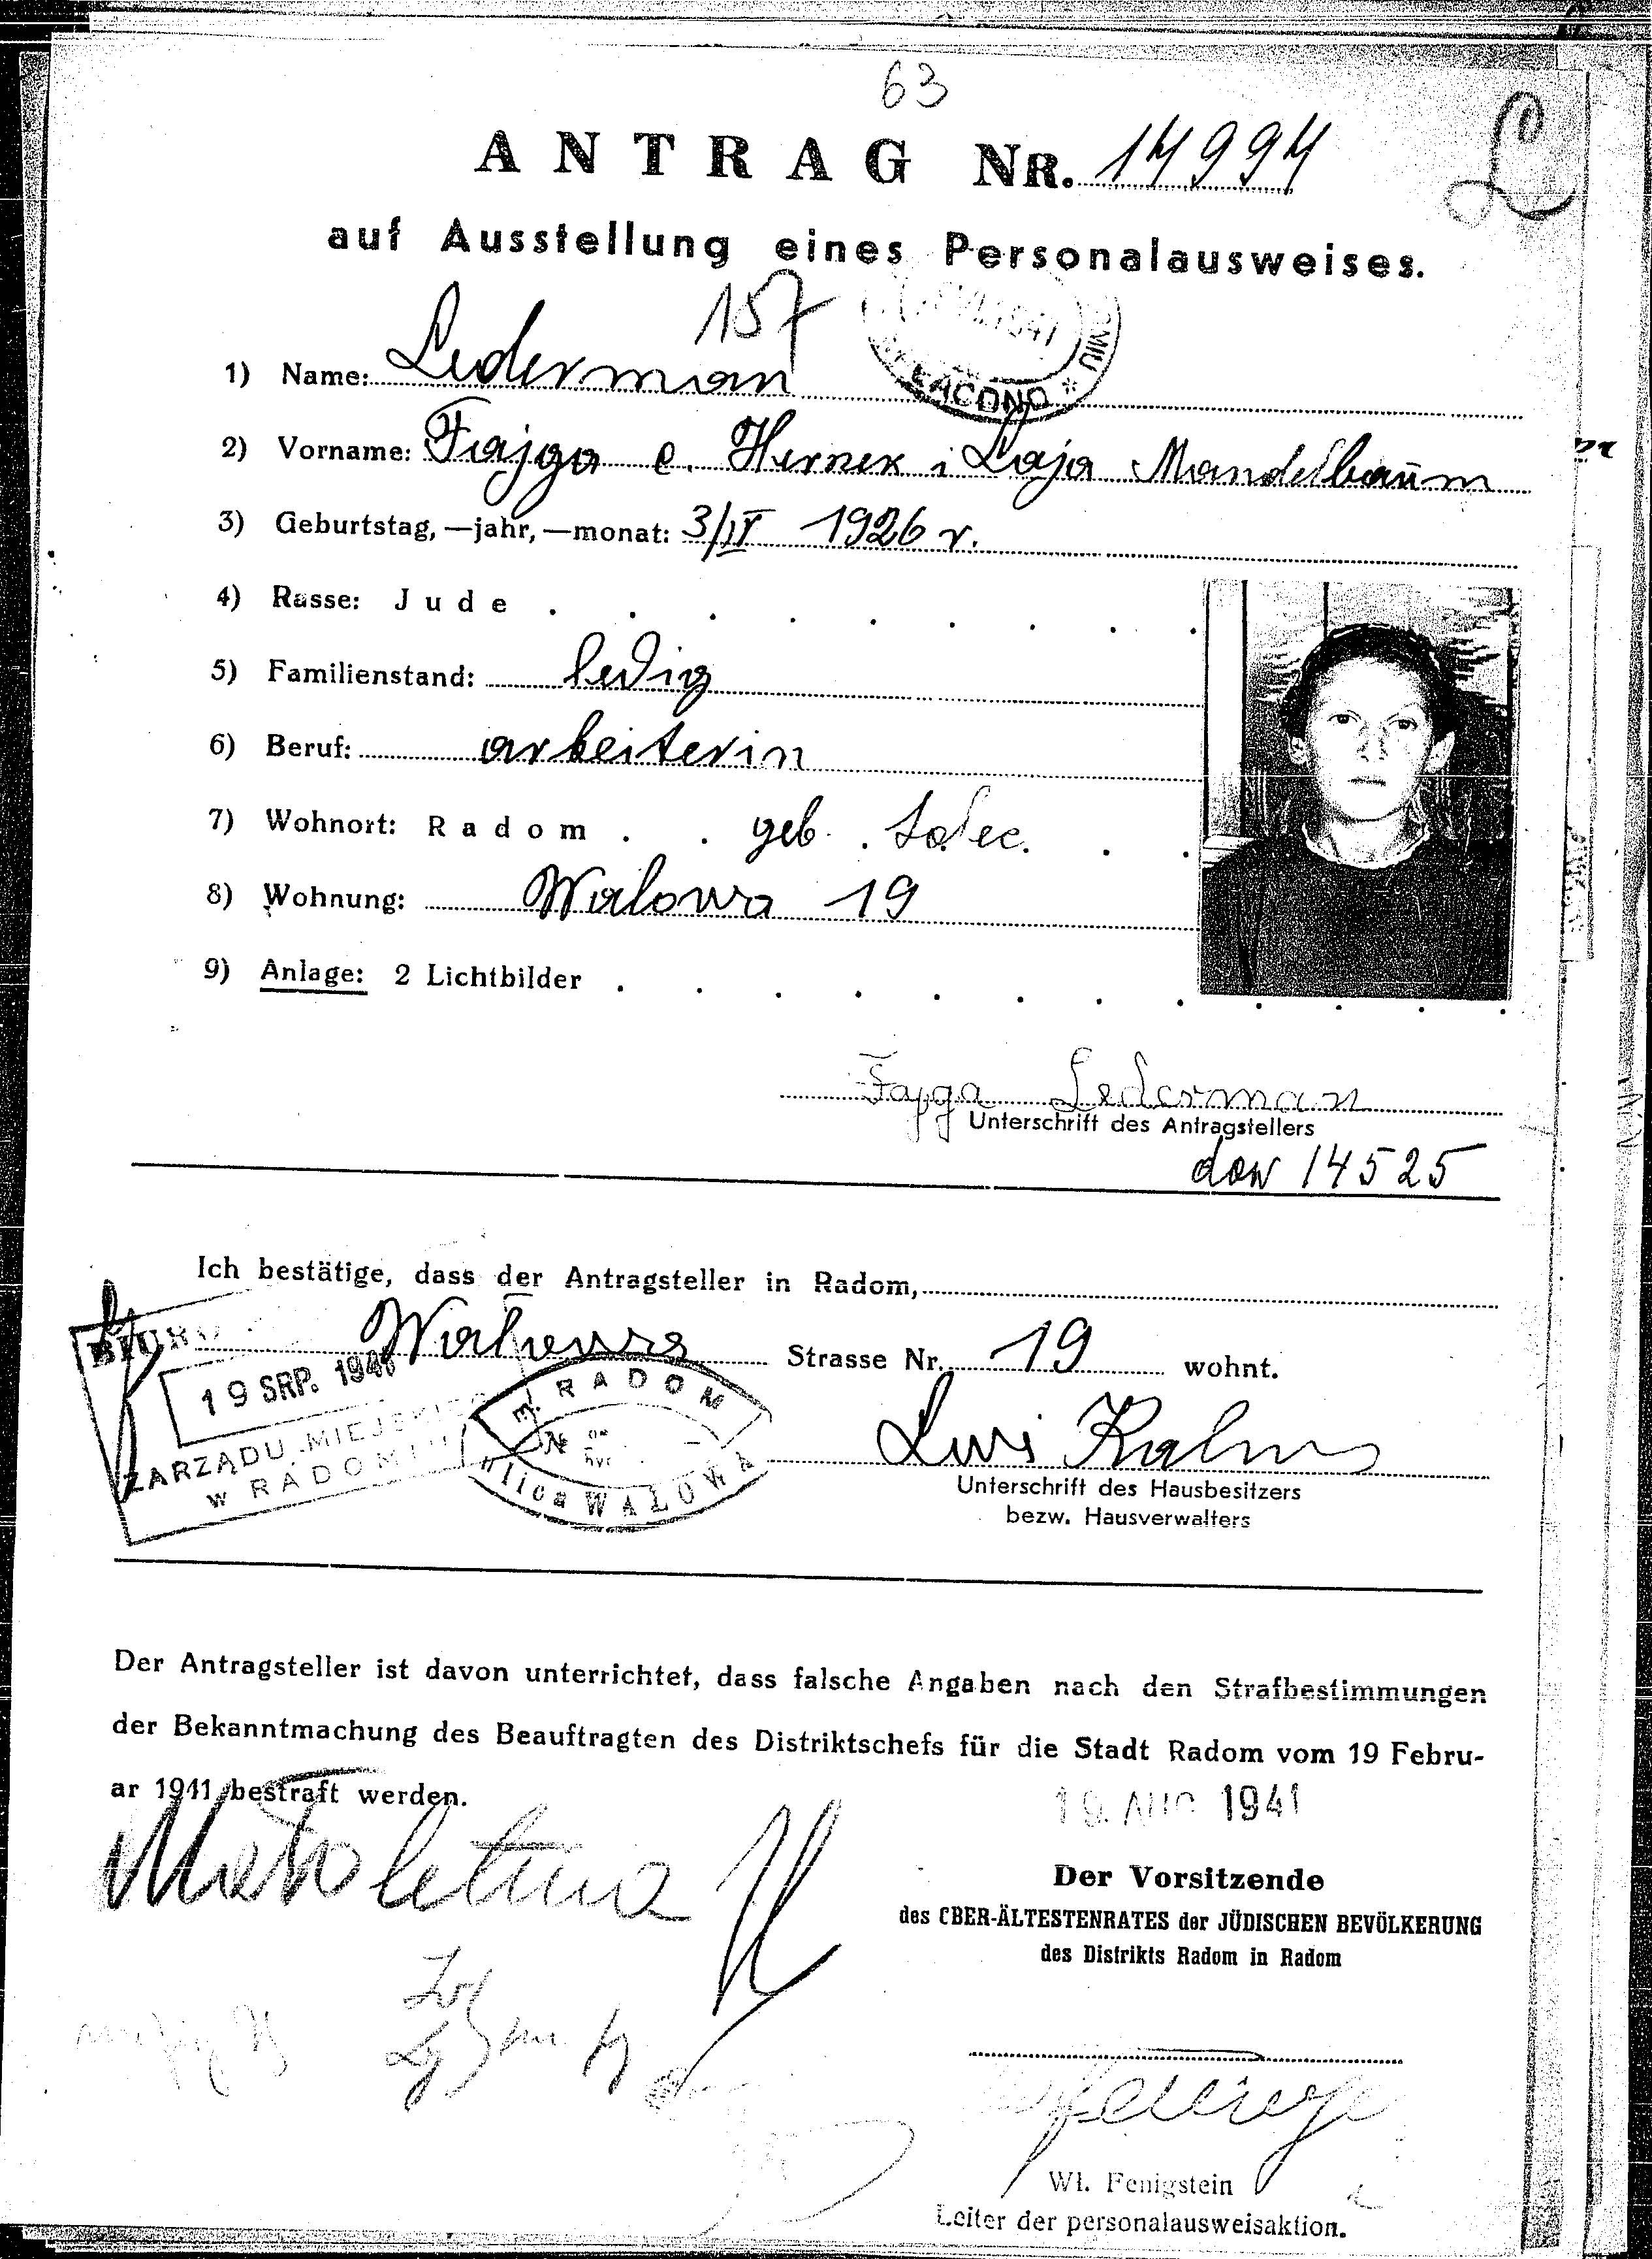 63
ANTRAG NR. 14994
auf Ausstellung eines Personalausweises.
157
1) Name: Lederman
2) Vorname: Fajga c. Herszek i Łaja Mandelbaum
3) Geburtstag, —jahr, —monat: 3/IV 1926 r.
4) Rasse: Jude
5) Familienstand: ledig
6) Beruf: arbeiterin
7) Wohnort: Radom geb. Solec.
8) Wohnung: Walowa 19
9) Anlage: 2 Lichtbilder
Fajga Lederman
Unterschrift des Antragstellers
dow 14525
Ich bestätige, dass der Antragsteller in Radom,
Strasse Nr. 19 wohnt.
BIURO
19 SRP. 1941
ZARZĄDU MIEJSKIEGO
w RADOMIU
RADOM
ulica WAŁOWA
Unterschrift des Hausbesitzers
bezw. Hausverwalters
Der Antragsteller ist davon unterrichtet, dass falsche Angaben nach den Strafbestimmungen
der Bekanntmachung des Beauftragten des Distriktschefs für die Stadt Radom vom 19 Febru-
ar 1941 bestraft werden.
19. AUG 1941
Małoletnia
Der Vorsitzende
des OBER-ÄLTESTENRATES der JÜDISCHEN BEVÖLKERUNG
des Distrikts Radom in Radom
Wł. Fenigstein
Leiter der personalausweisaktion.